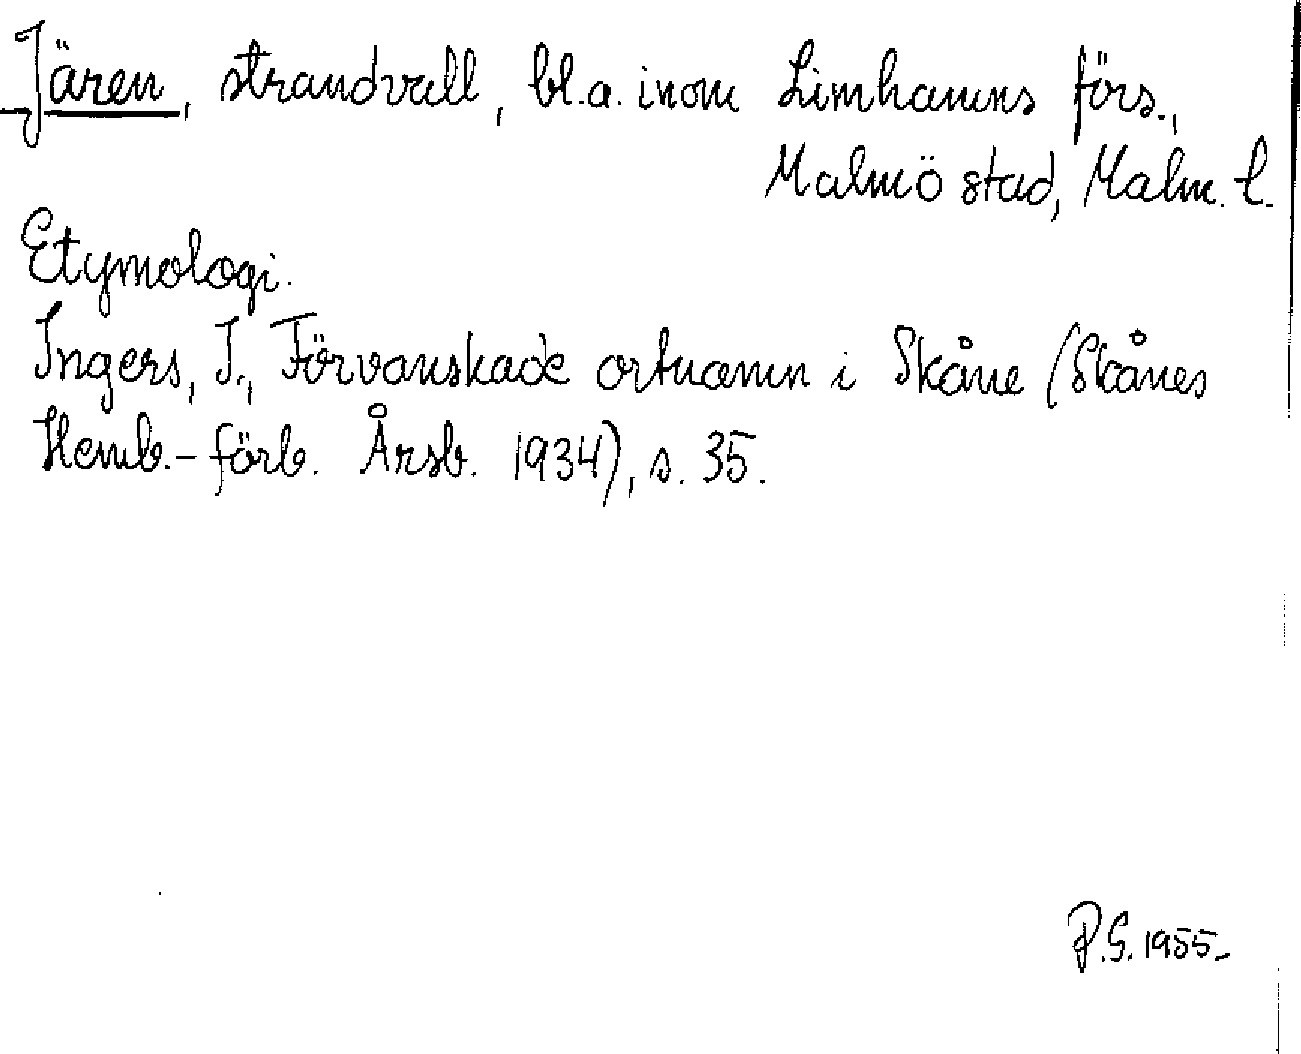 Jären, strandvall, bl.a. inom Limhamns förs.,
Malmö stad, Malm. l.
Etymologi.
Ingers, I., Förvanskade ortnamn i Skåne (Skånes
Hemb.-förb. Årsb. 1934), s. 35.
P.S. 1955